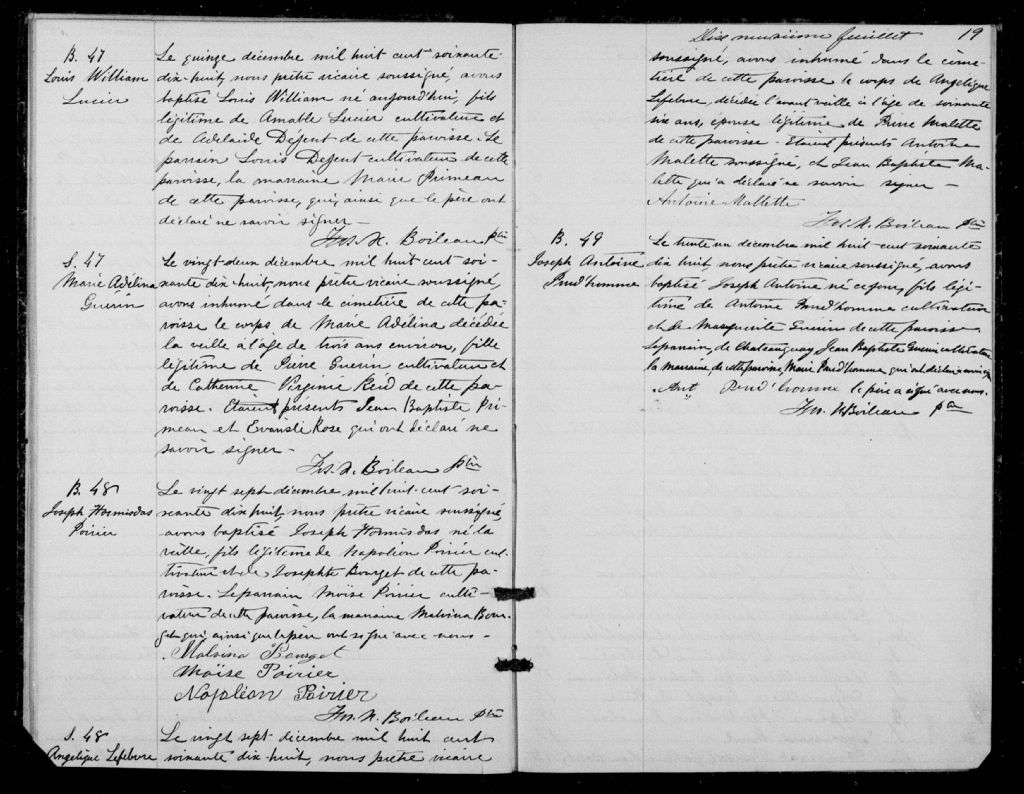 B. 47
Louis William
Lucier
Le quinze décembre mil huit cent soixante
dix-huit, nous prêtre vicaire soussigné, avons
baptisé Louis William né aujourd'hui, fils
légitime de Amable Lucier cultivateur et
de Adelaide Defent de cette paroisse. Le
parrain Louis Defent cultivateur de cette
paroisse, la marraine Marie Primeau
de cette paroisse, qui, ainsi que le père ont
déclaré ne savoir signer —
Jos. N. Boileau Ptre
S. 47
Marie Adélina
Guérin
Le vingt-deux décembre, mil huit cent soi-
xante dix-huit, nous prêtre vicaire soussigné,
avons inhumé dans le cimetière de cette pa-
roisse le corps de Marie Adélina décédée
la veille à l'âge de trois ans environ, fille
légitime de Pierre Guérin cultivateur et
de Catherine Virginie Reid de cette pa-
roisse. Etaient présents Jean Baptiste Pri-
meau et Evariste Rose qui ont déclaré ne
savoir signer —
Jos. N. Boileau ptre
B. 48
Joseph Hormisdas
Poirier
Le vingt sept décembre mil huit cent soi-
xante dix huit, nous prêtre vicaire soussigné,
avons baptisé Joseph Hormisdas né la
veille, fils légitime de Napoléon Poirier cul-
tivateur et de Josephte Bourget de cette pa-
roisse. Le parrain Moïse Poirier culti-
vateur de cette paroisse, la marraine Malvina Bour-
get qui, ainsi que le père ont signé avec nous —
Malvina Bourget
Moïse Poirier
Napoléon Poirier
Jos. N. Boileau Ptre
S. 48
Angelique Lefebvre
Le vingt sept décembre mil huit cent
soixante dix-huit, nous prêtre vicaire
Dix neuvième feuillet 19
soussigné, avons inhumé dans le cime-
tière de cette paroisse le corps de Angelique
Lefebvre, décédée l'avant veille à l'âge de soixante
six ans, épouse légitime de Pierre Malette
de cette paroisse — Etaient présents Antoine
Malette soussigné, et Jean Baptiste Ma-
lette qui a déclaré ne savoir signer —
Antoine Mallette
Jos. N. Boileau Ptre
B. 49
Joseph Antoine
Prud'homme
Le trente un décembre mil huit cent soixante
dix huit, nous prêtre vicaire soussigné, avons
baptisé Joseph Antoine né ce jour, fils légi-
time de Antoine Prud'homme cultivateur
et de Marguerite Guerin de cette paroisse
Le parrain, de Chateauguay Jean Baptiste Guerin cultivateur
la marraine de cette paroisse, Marie Prud'homme, qui ont déclaré ne
Ant Prud'homme le père a signé avec nous.
Jos. N Boileau ptre